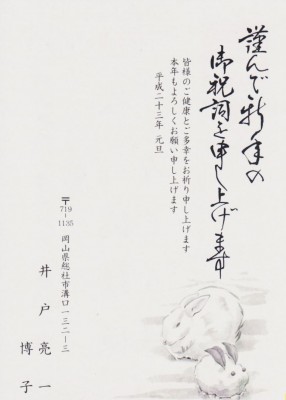 謹んで新年の
御祝詞を申し上げます
皆様のご健康とご多幸をお祈り申し上げます
本年もよろしくお願い申し上げます
平成二十三年 元旦
〒719-1135
岡山県総社市溝口一三二-三
井戸亮一
博子